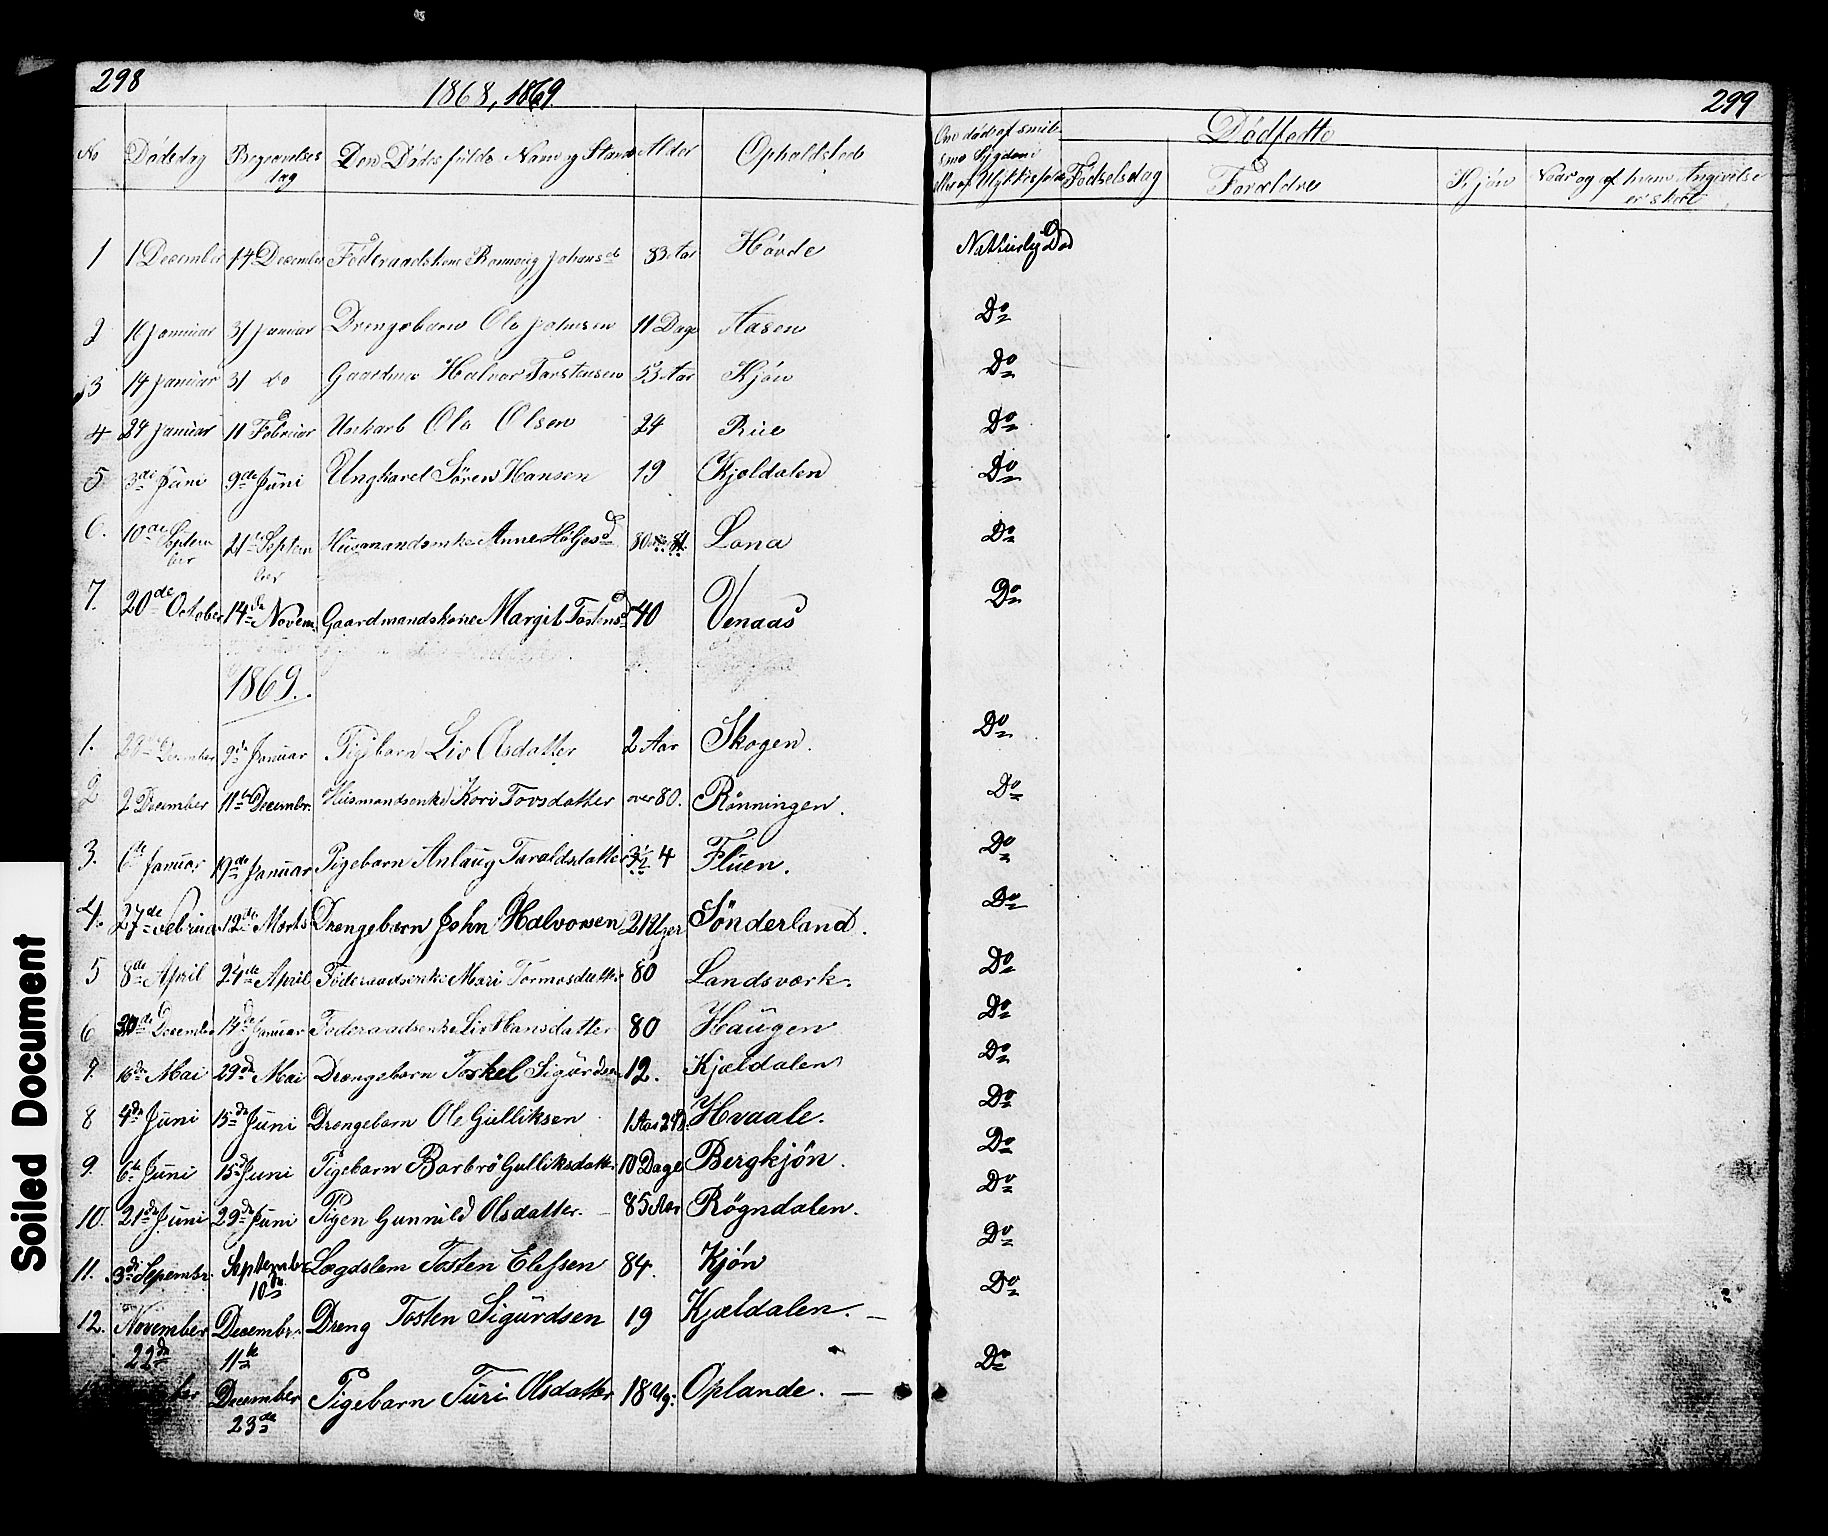 298
1868, 1869
299
No Dødsdag Begravelses dag Den Dødes fulde Navn og Stand Alder Opholdsted
Om død af smitsmo Sygdom eller af Ulykkesfald Dødfødte
Fødselsdag Forældre Kjøn Naar og af hvem Angivelse er skeet
1 1 December 14 December Föderaadskone Rannoug Johansd 83 Aar Hövde Naturlig Död
2 10 Januar 31 Januar Drengebarn Ole Johnsen 11 Dage Aasen Do
3 14 Januar 31 do Gaardm Halvor Torstensen 53 Aar Kjön Do
4 24 Januar 11 Februar Unkarl Ola Olsen 24 Rue Do
5 3die Juni 9de Juni Ungkarl Sören Hansen 19 Kjeldalen Do
6. 10de September 21de September Husmandsenke Anne Helgesd 80 Lona Do
7. 20de October 14de Novem Gaardmandskone Margit Tostensd 40 Venaas Do
1869.
1. December 9de Januar Pigebarn Liv Olsdatter 2 Aar Skogen. Do
2 2 December 11te Decembr. Husmandsenke Kari Tovsdatter over 80. Rönningen. Do
3. 6te Januar 19de Januar Pigebarn Anlaug Taraldsdatter 3½ 4 Fluen. Do
4. 27de Februar 12de Marts Drengebarn John Halvorsen 21 Uger Sönderland. Do
5 8de April 24de April Föderaadsenke Mari Tormosdatter 80 Landsværk. Do
6 30de December 14de Januar Föderaadsenke Liv Hansdatter 80 Haugen Do
7. 16de Mai 29de Mai Drengebarn Toskel Sigurdsen 12. Kjældalen Do
8 4de Juni 15de Juni Drengebarn Ole Gulliksen 1 Aar 24 D. Hvaale. Do
9. 6te Juni 15de Juni Pigebarn Barbrö Gulliksdatt. 10 Dage Bergkjön. Do
10. 21de Juni 29de Juni Pigen Gunnild Olsdatter. 85 Aar Rögndalen. Do
11. 3die Sepembr. September 10de Lægdslem Tosten Elefsen 84. Kjön Do
12. November 22de Decembr. 11te Dreng Tosten Sigurdsen 19 Kjældalen. Do
December 23de Pigebarn Turi Olsdatter 18 Ug: Oplande. Do
Soiled Document